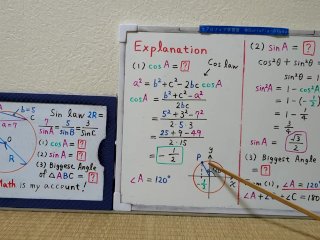 b=5
C
a=7
O
R
Sin law 2R=
7/sinA = 5/sinB = 3/sinC
(1) cosA = ?
(2) sinA = ?
(3) Biggest Angle
of △ABC = ?
Math is my account!
Explanation
(1) cosA = ?
Cos law
a² = b²+c²-2bc cosA
cosA = b²+c²-a²/2bc
= 5²+3²-7²/2·5·3
= 25+9-49/2·15
= -1/2
∠A = 120°
P
y
x
(2) sinA = ?
cos²θ + sin²θ =
sin²θ = 1-
sin²A = 1-cos²A
= 1-(-1/
= 3/4
sinA = √3/2
(3) Biggest
= ?
(1), ∠A = 120°
∠A+∠B+∠C=180